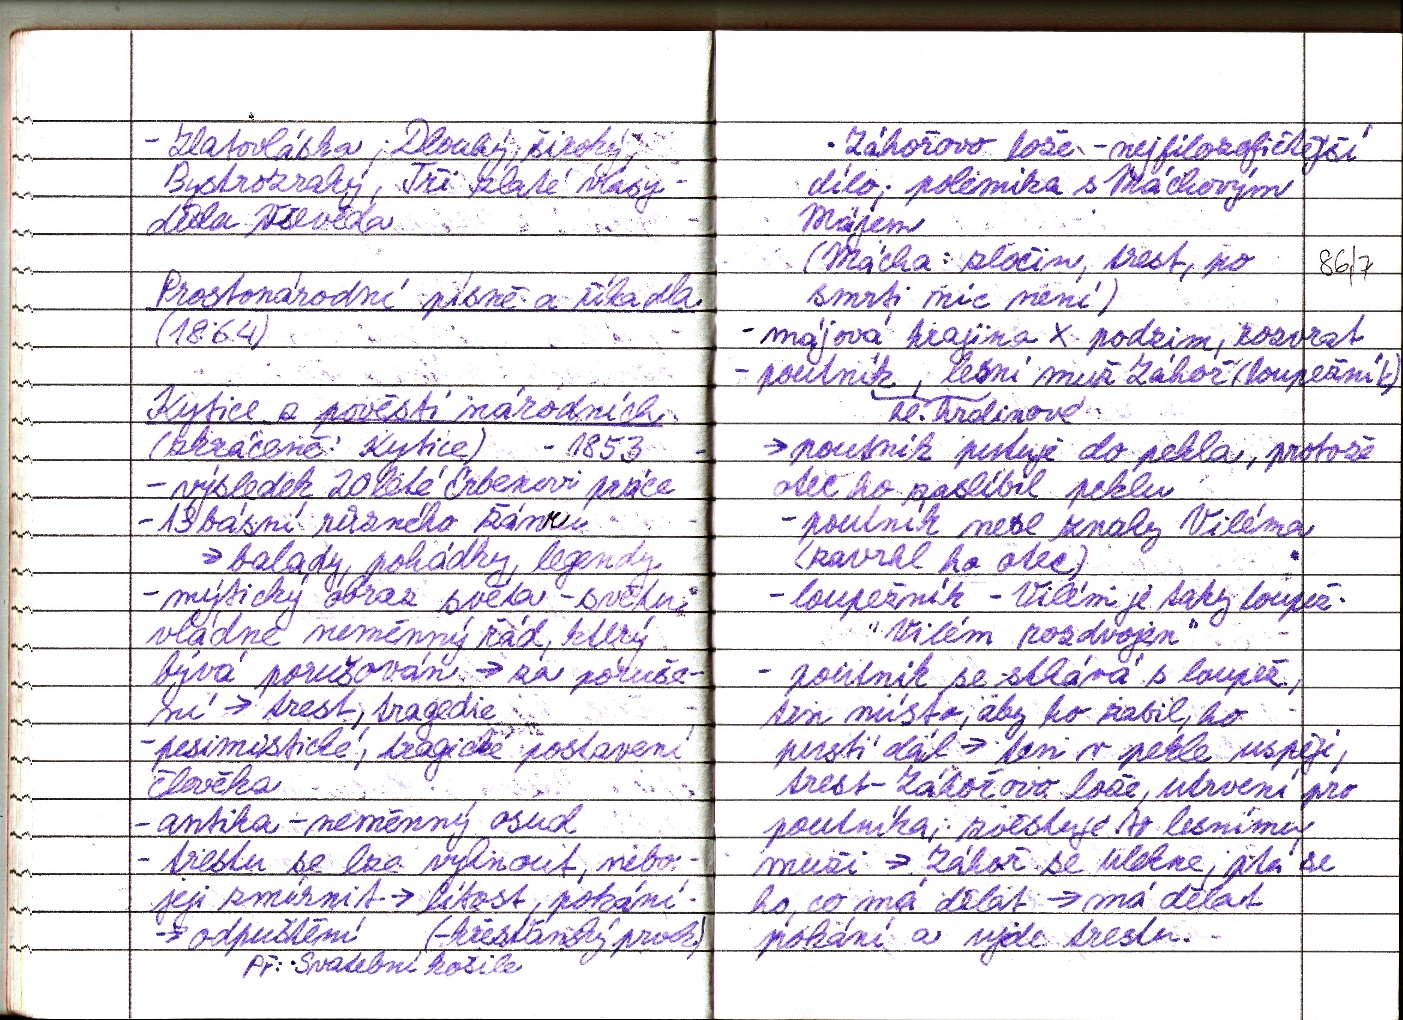 - Zlatovláska, Dlouhý, široký,
Bystrozraký, Tři zlaté vlasy
děda Vševěda
Prostonárodní písně a říkadla
(1864)
Kytice z pověstí národních
(zkráceně: Kytice) - 1853
- výsledek 20leté Erbenovi práce
- 13 básní různého žánru
→ balady, pohádky, legendy
- mýtický obraz světa - světu
vládne neměnný řád, který
bývá porušován → za poruše-
ní → trest, tragedie
- pesimistické, tragické postavení
člověka
- antika - neměnný osud
- trestu se lze vyhnout, nebo
jej zmírnit → lítost, pokání
→ odpuštění (-křesťanský prvek)
Př.: Svatební košile
• Záhořovo lože - nejfilozofičtější
dílo; polemika s Máchovým
Májem
(Mácha: zločin, trest, po
smrti nic není)
86/7
- májová krajina X podzim, rozvrat
- poutník, lesní muž Záhoř (loupežník)
hl. hrdinové
→ poutník putuje do pekla, protože
otec ho zaslíbil peklu
- poutník nesl znaky Viléma
(zavrhl ho otec)
- loupežník - Vilém je taky loupež.
"Vilém rozdvojen"
- poutník se stkává s loupež.,
ten místo, aby ho zabil, ho
pustí dál → ten v pekle uspěje,
trest - Záhořovo lože, utrvení pro
poutníka; zvěstuje to lesnímu
muži → Záhoř se lekne, ptá se
ho, co má dělat → má dělat
pokání a ujde trestu.